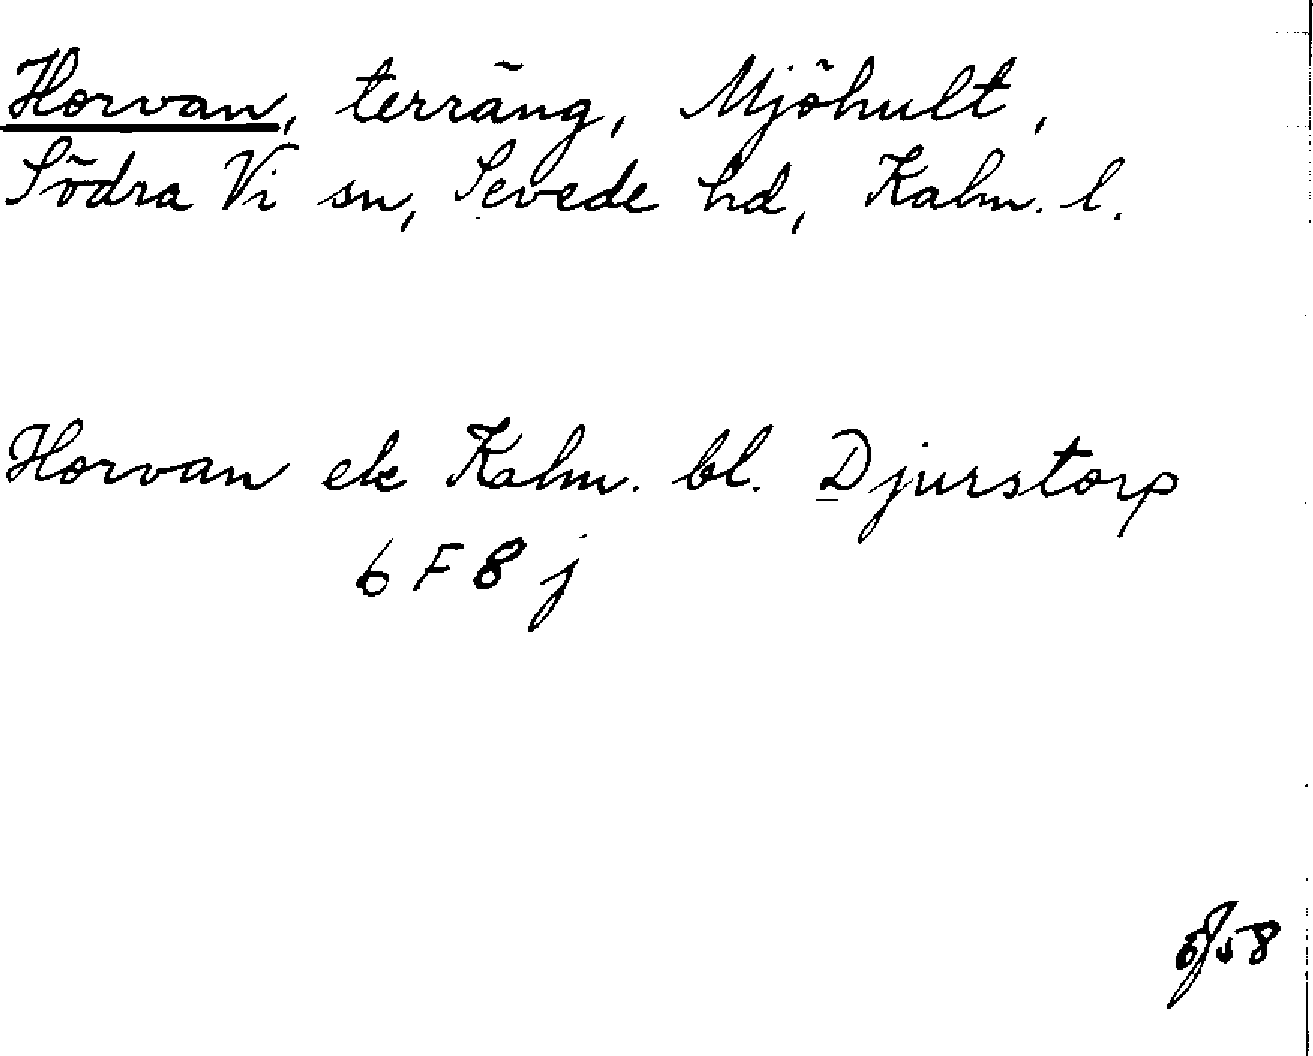 Horvan, terräng, Mjöhult,
Södra Vi sn, Sevede hd, Kalm. l.
Horvan ek Kalm. bl. Djurstorp
6 F 8 j